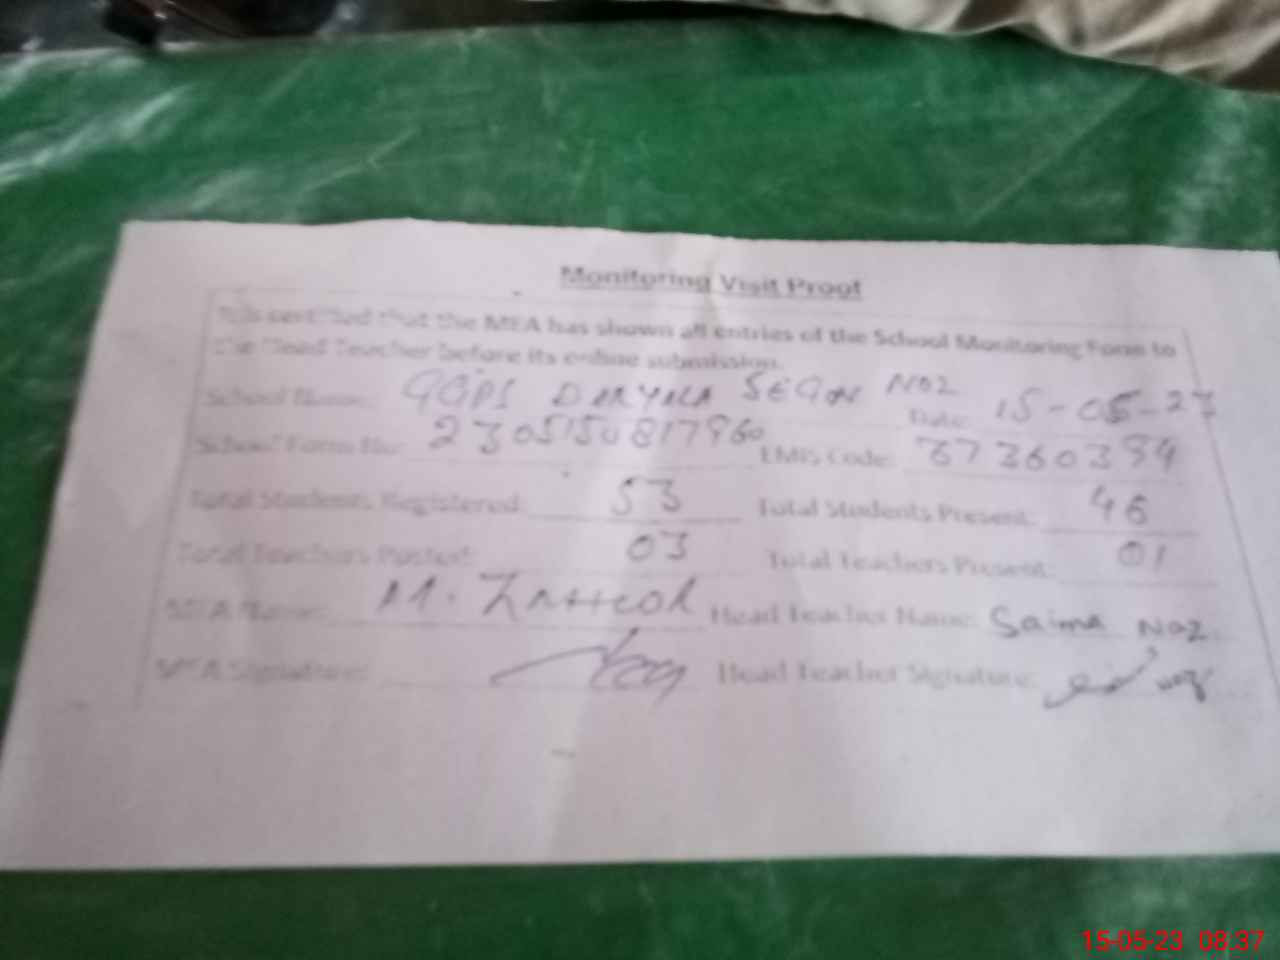 Monitoring Visit Proof
It is certified that the MEA has shown all entries of the School Monitoring Form to
the Head Teacher before its online submission.
School Name: GGPS DARYALA SEGON NO2 Date: 15-05-23
School Form No: 2305150817960 EMIS Code: 37360394
Total Students Registered: 53 Total Students Present: 46
Total Teachers Posted: 03 Total Teachers Present: 01
MEA Name: M. Zaheer Head Teacher Name: Saima Naz
MEA Signature: Head Teacher Signature:
15-05-23 08:37